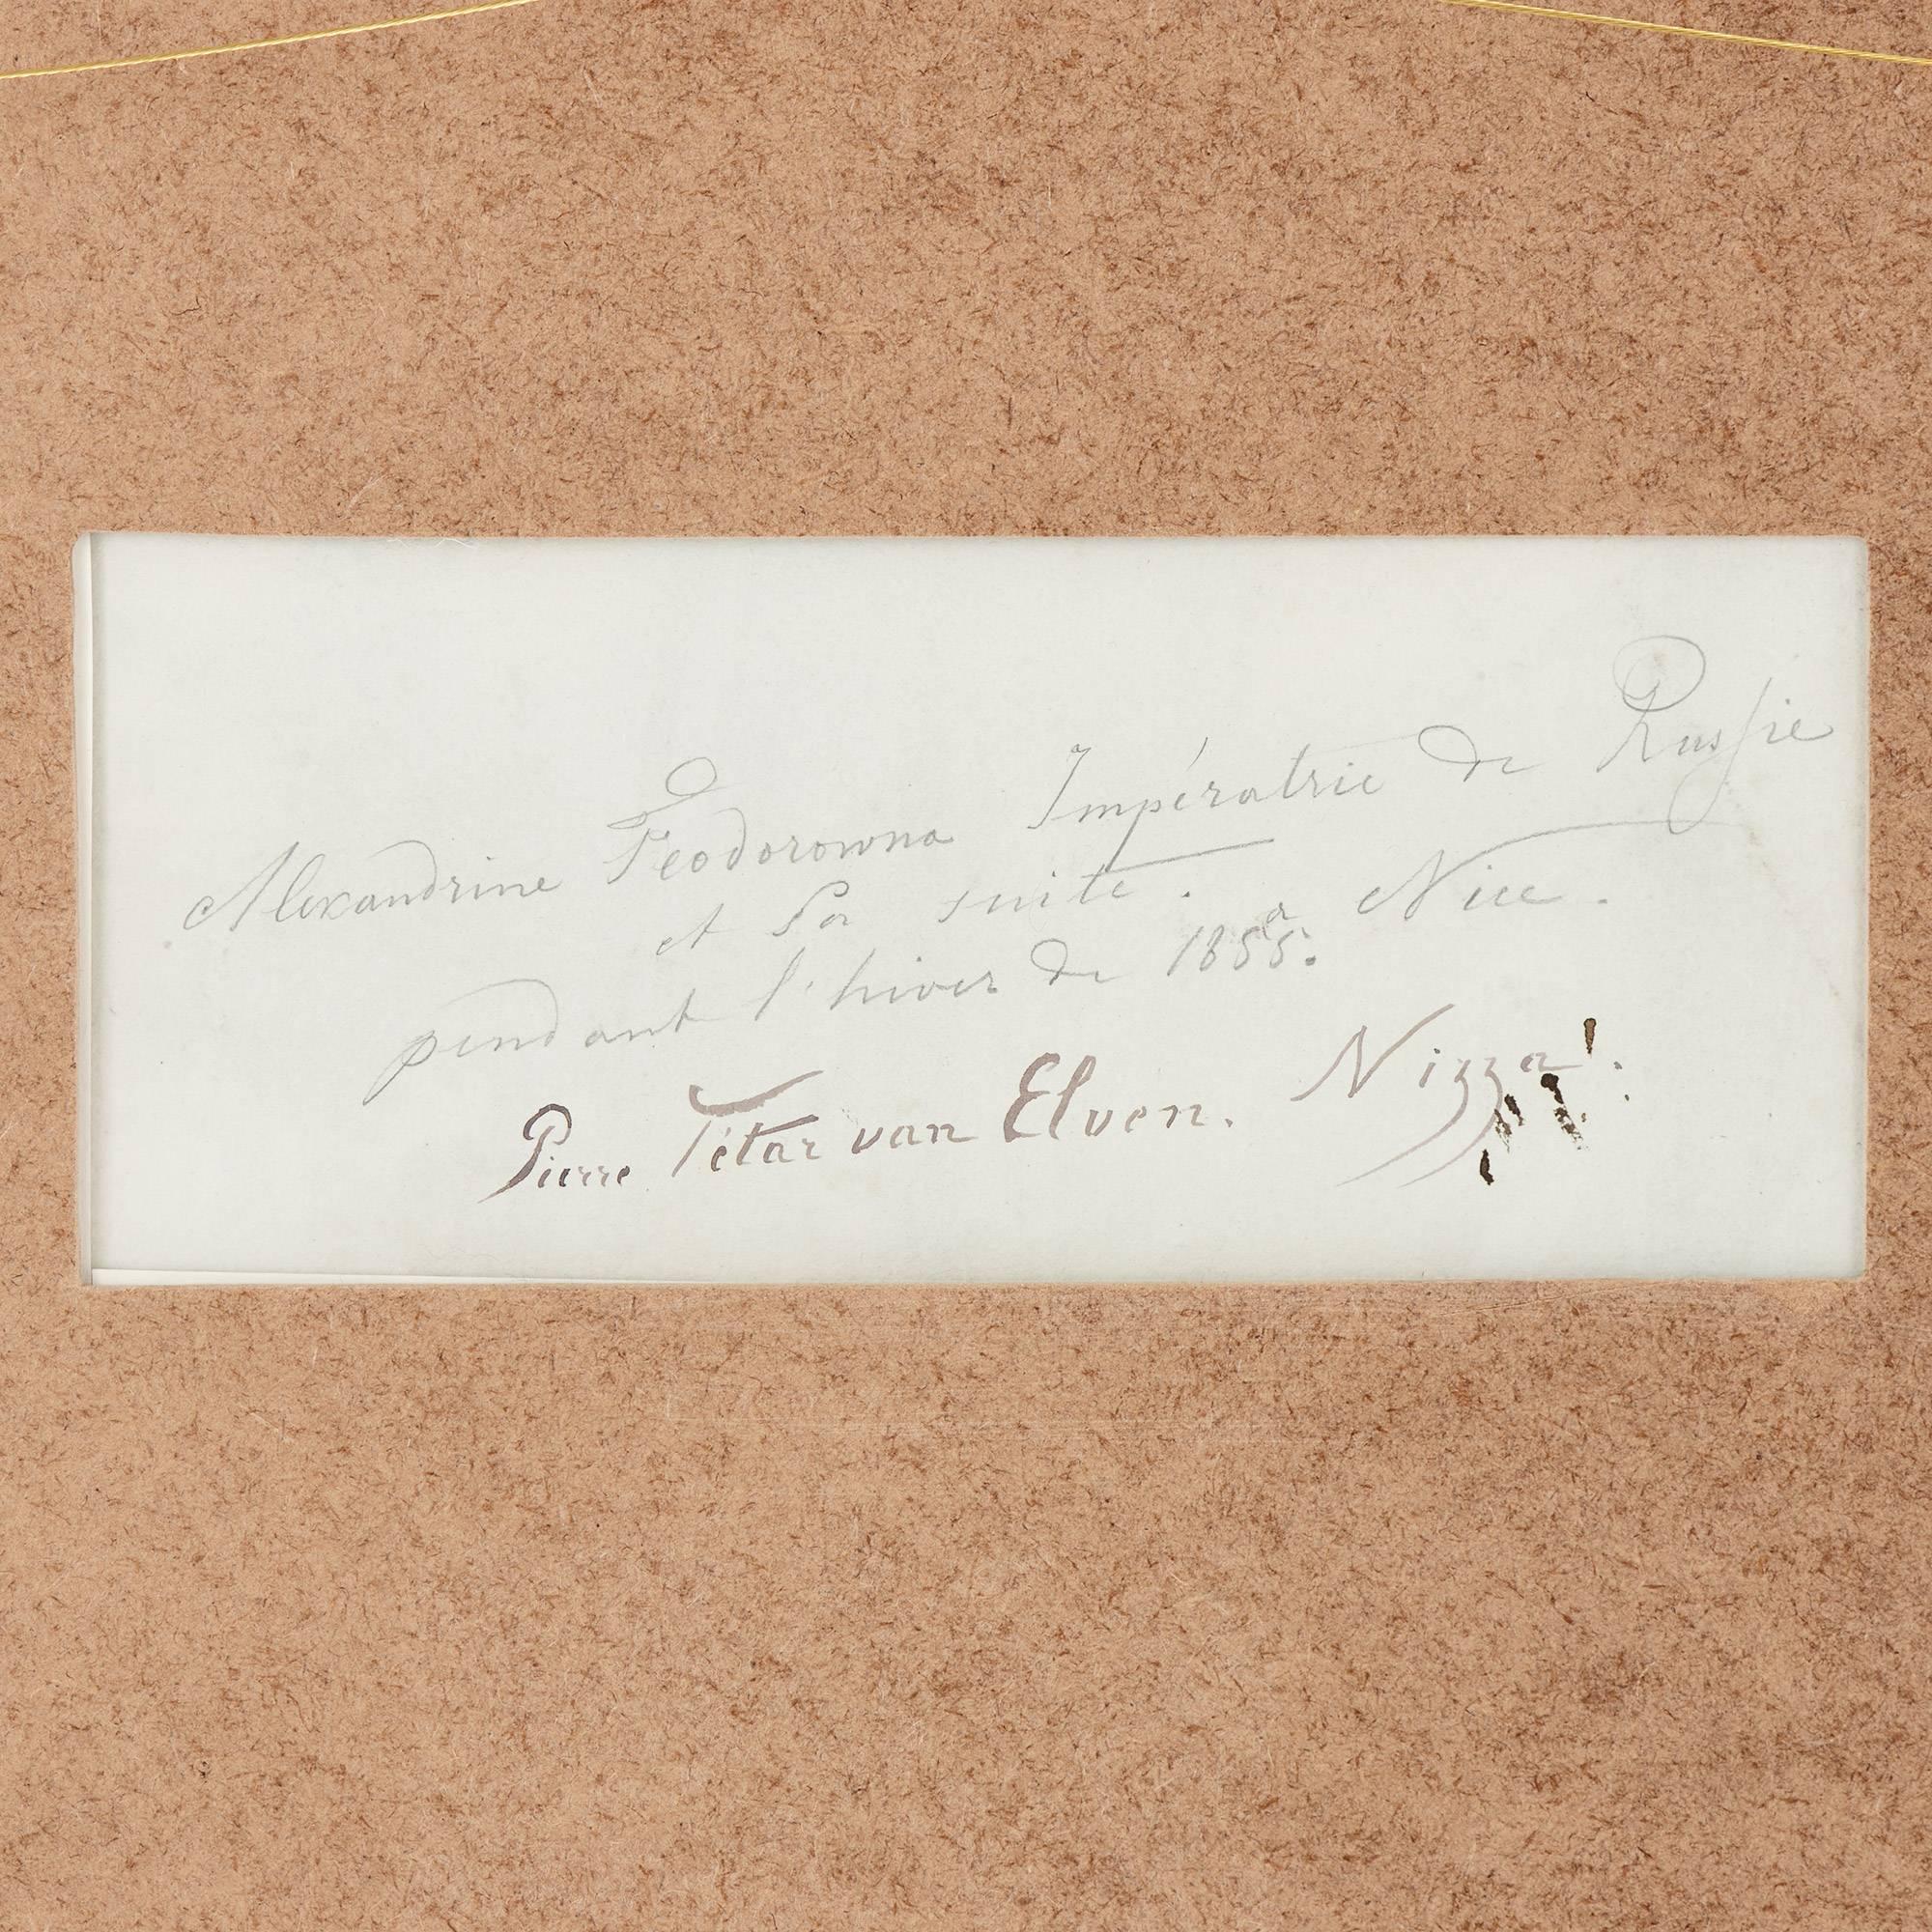 Alexandrine Feodorowna Impératrice de Russie
et Sa suite.
pendant l'hiver de 1855. a Nice.
Pierre Tétar van Elven. Nizza.